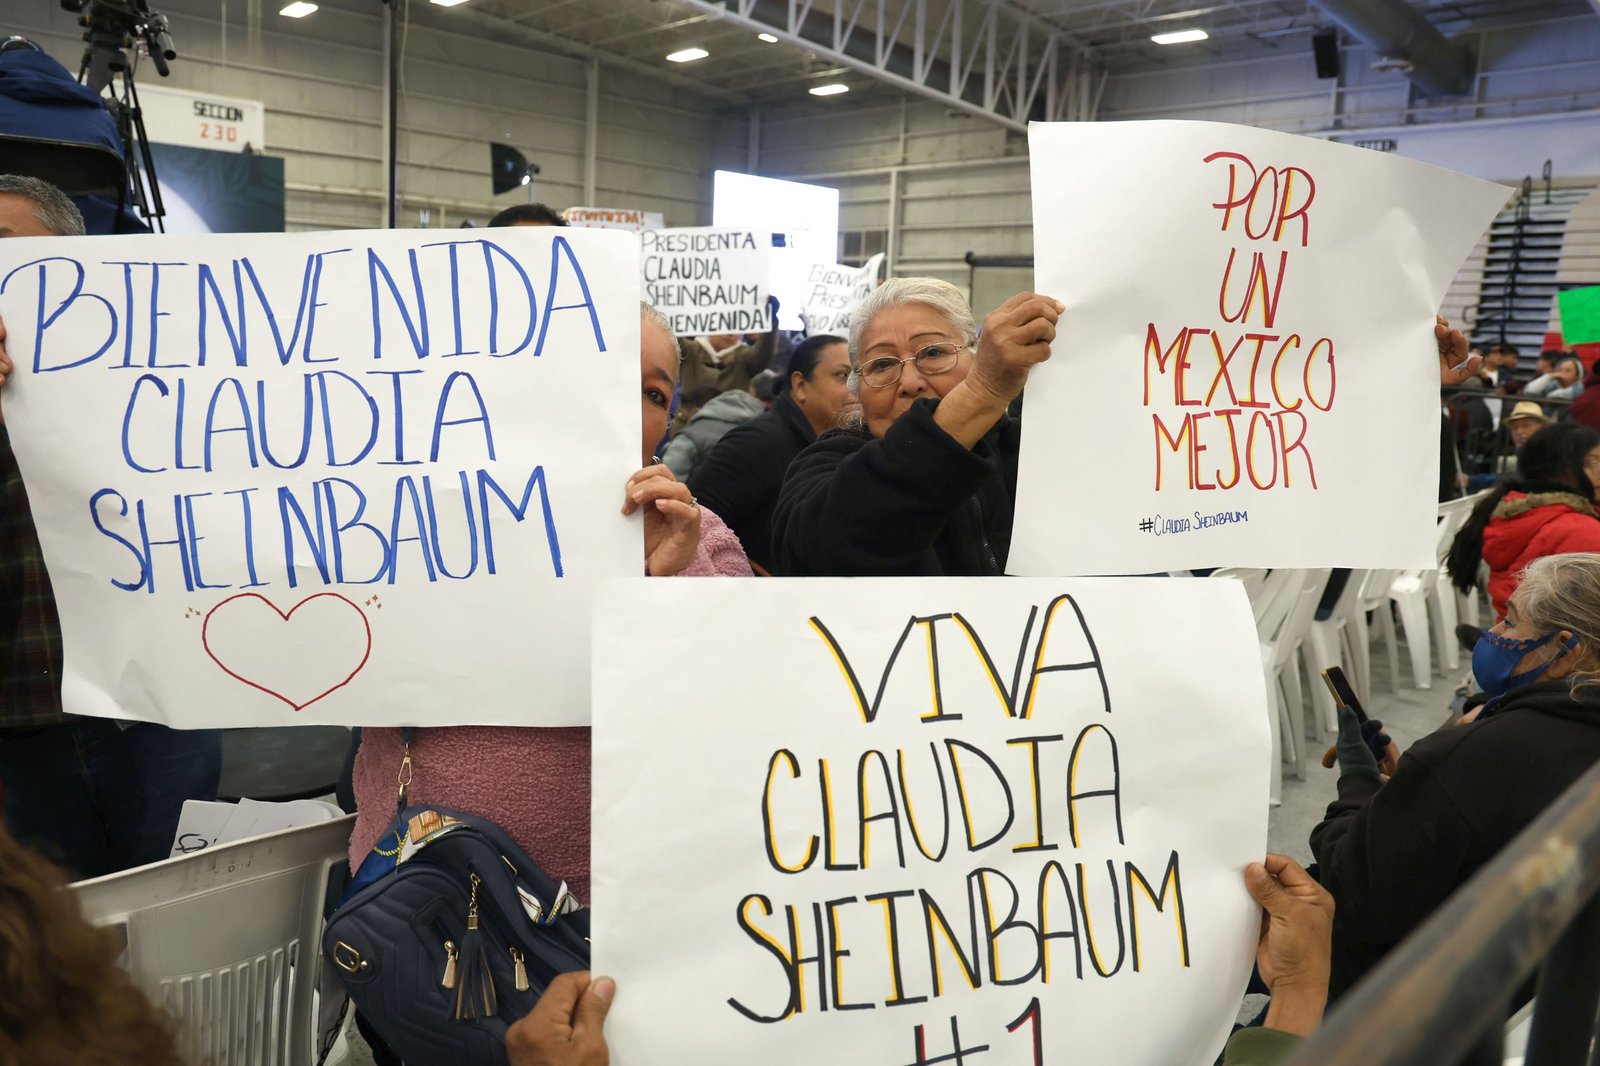 SECCION
230
BIENVENIDA
CLAUDIA
SHEINBAUM
PRESIDENTA
CLAUDIA
SHEINBAUM
BIENVENIDA!
POR
UN
MEXICO
MEJOR
#CLAUDIA SHEINBAUM
VIVA
CLAUDIA
SHEINBAUM
#1
SECCION